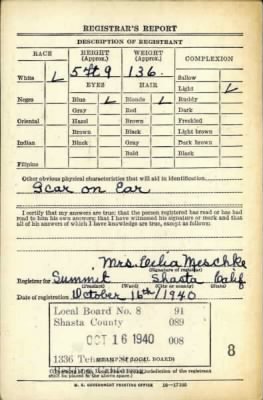 REGISTRAR'S REPORT
DESCRIPTION OF REGISTRANT
RACE HEIGHT (Approx.) WEIGHT (Approx.) COMPLEXION
White 5 ft 9 136. Sallow
EYES HAIR Light
Negro Blue Blonde Ruddy
Gray Red Dark
Oriental Hazel Brown Freckled
Brown Black Light brown
Indian Black Gray Dark brown
Bald Black
Filipino
Other obvious physical characteristics that will aid in identification
Scar on Ear
I certify that my answers are true; that the person registered has read or has had read to him his own answers; that I have witnessed his signature or mark and that all of his answers of which I have knowledge are true, except as follows:
Mrs. Delia Meschke
(Signature of registrar)
Registrar for Summit Shasta Calif
(Precinct) (Ward) (City or county) (State)
Date of registration October 16th/1940
Local Board No. 8 91
Shasta County 089
OCT 16 1940 008
1336
(STAMP OF LOCAL BOARD)
8
shall be placed in the above space.)
U. S. GOVERNMENT PRINTING OFFICE 16—17105